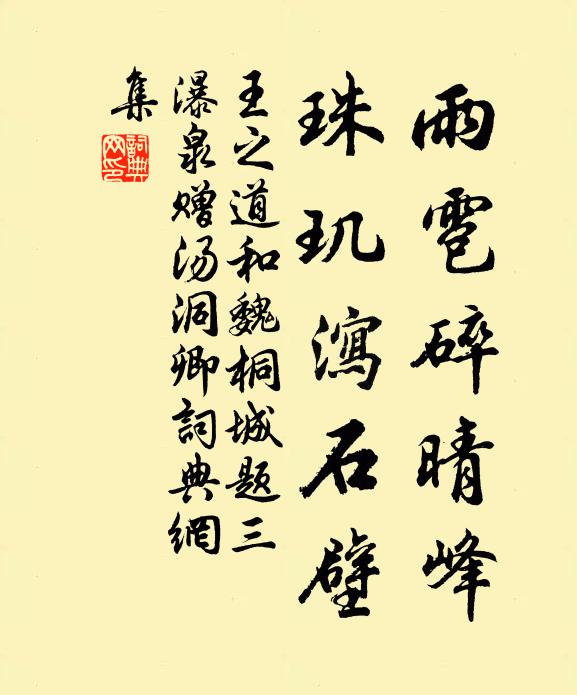 雨雹碎晴峰
珠玑瀉石壁
王之道和魏桐城题三
瀑泉赠汤洞卿詞典網
集
詞典
网印